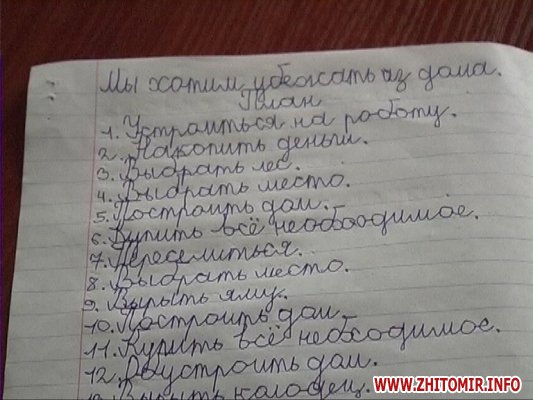 Мы хотим убежать из дома.
План
1. Устроиться на работу.
2. Накопить деньги.
3. Выбрать лес.
4. Выбрать место.
5. Построить дом.
6. Купить всё необходимое.
7. Переселиться.
8. Выбрать место.
9. Вырыть яму.
10. Построить дом.
11. Купить всё необходимое.
12. Обустроить дом.
13. Вырыть колодец.
WWW.ZHITOMIR.INFO